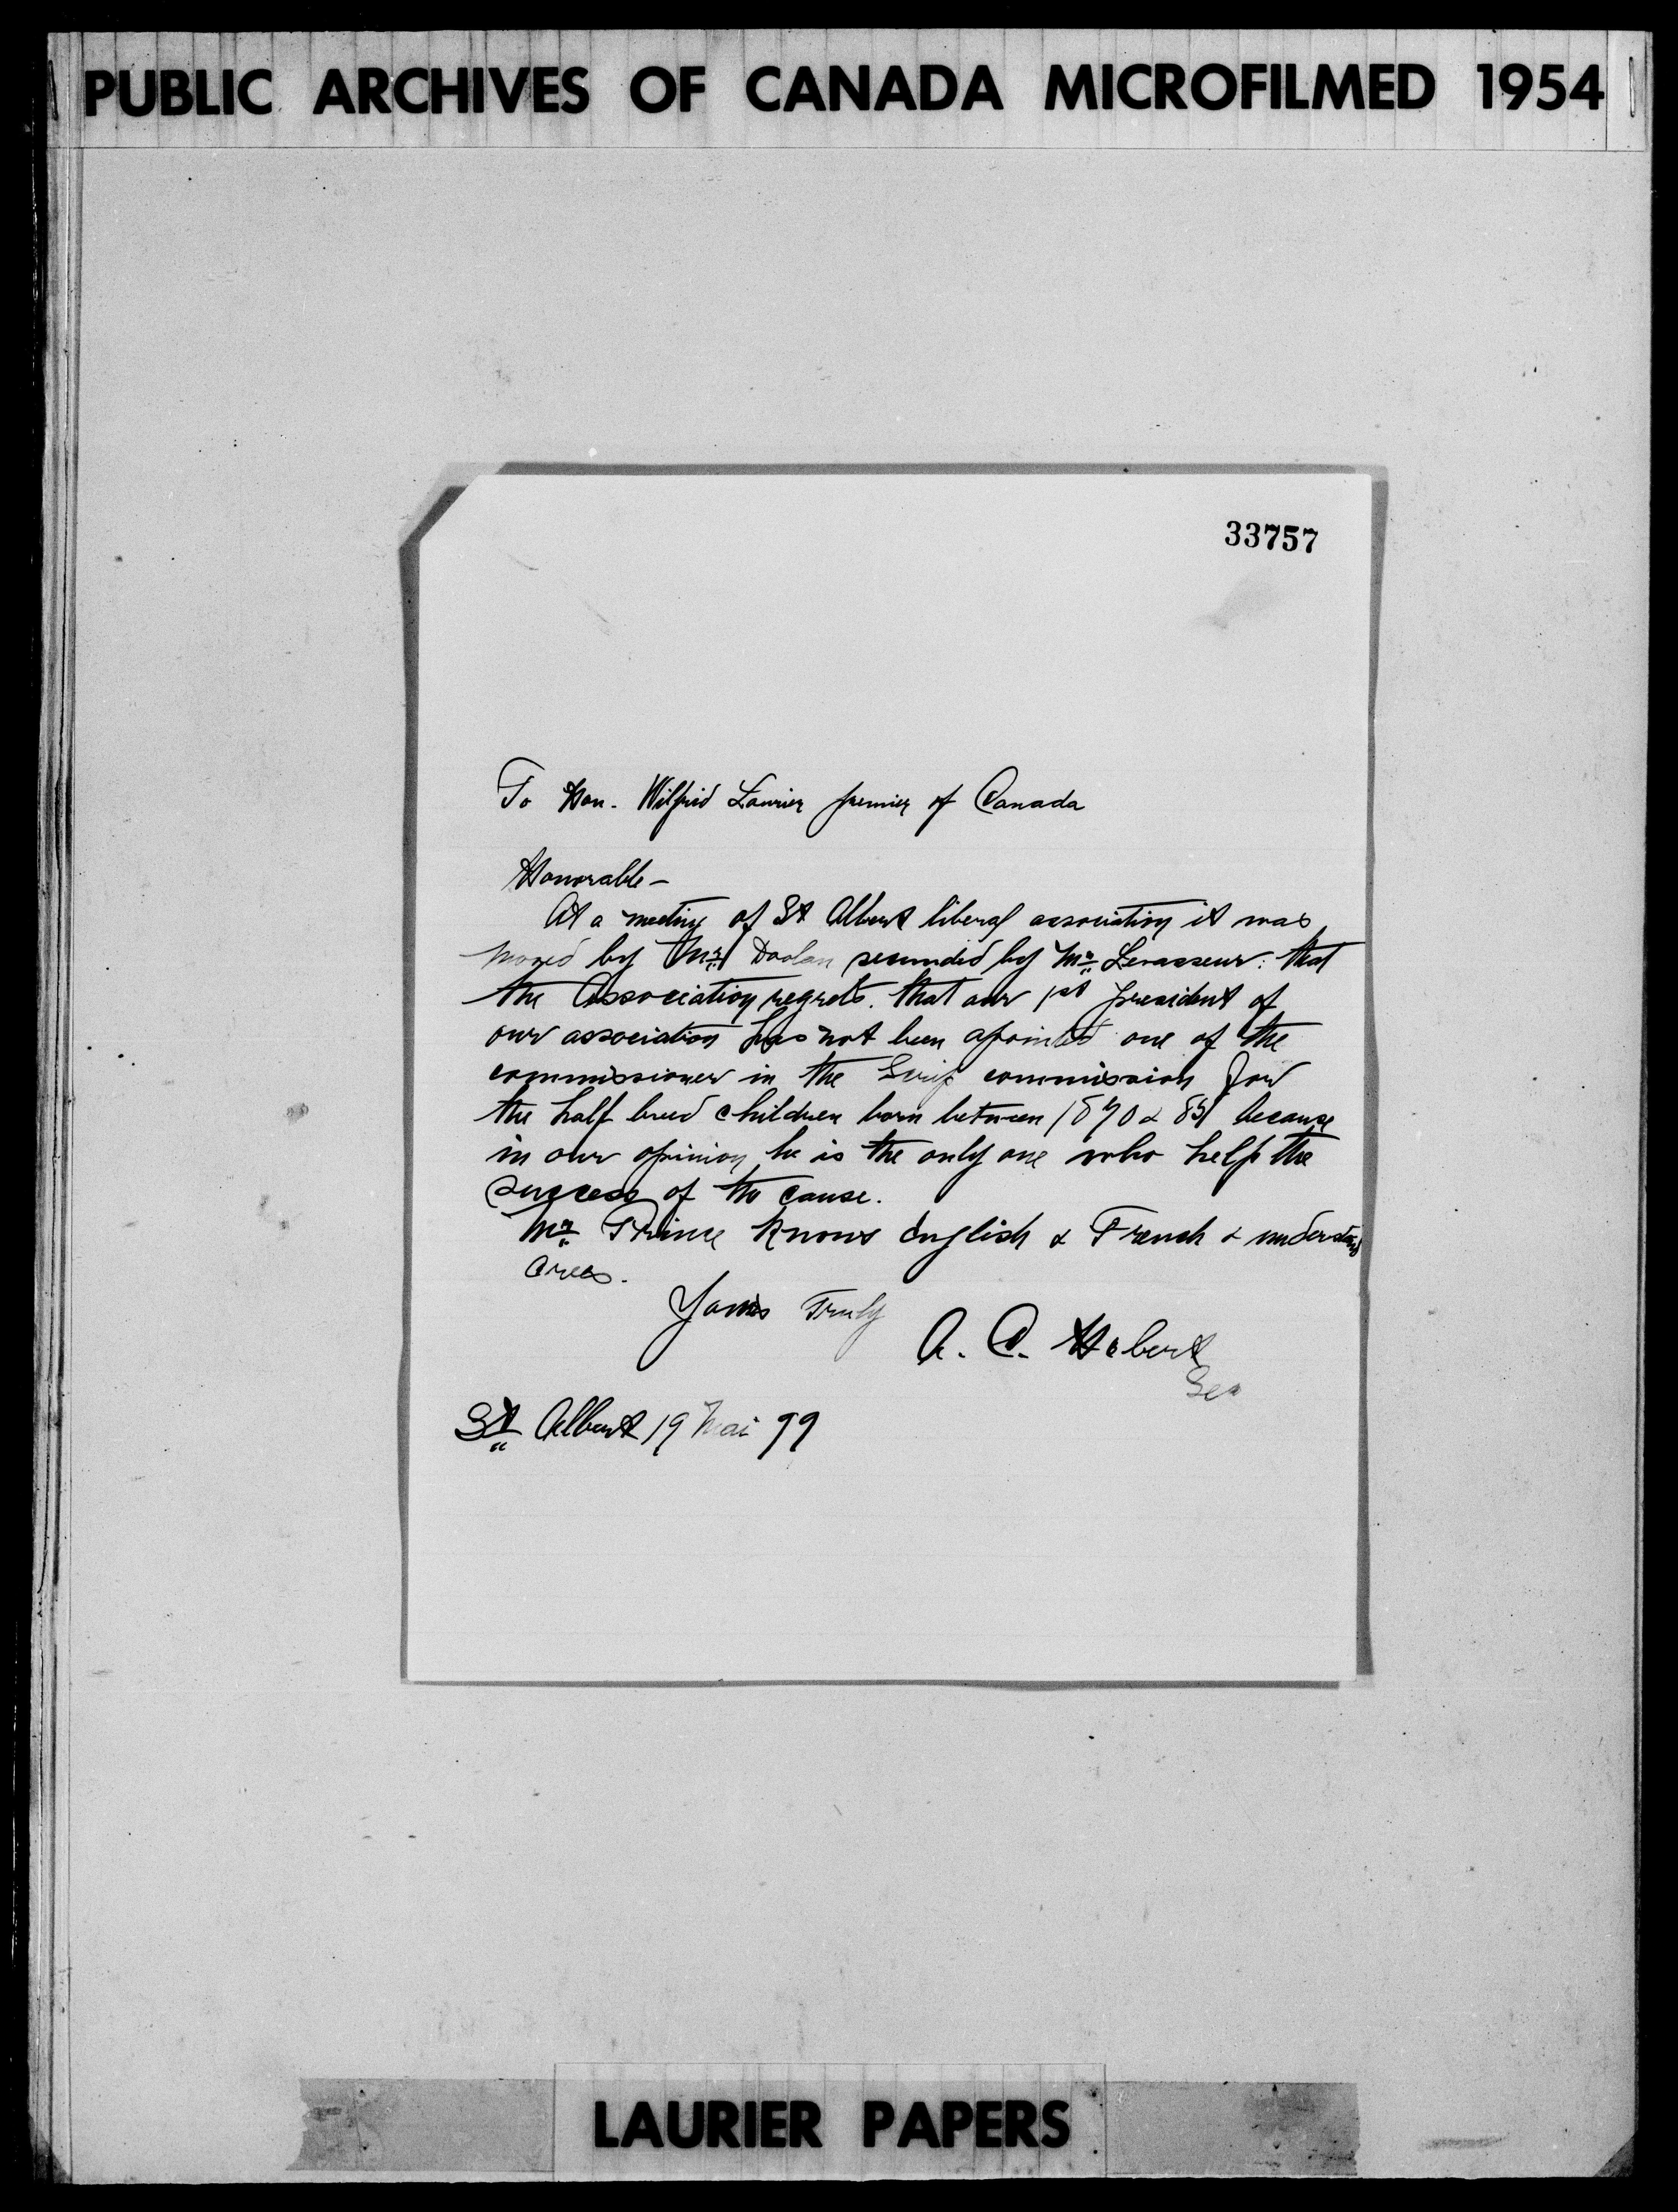 PUBLIC ARCHIVES OF CANADA MICROFILMED 1954
33757
To Hon. Wilfrid Laurier premier of Canada
Honorable -
At a meeting of St Albert liberal association it was
moved by Mr Doolan secunded by Mr Levasseur: that
the Association regrets. that our 1st president of
our association has not been apointed one of the
commissioner in the Scrip commission for
the half breed children born between 1870 & 85 because
in our opinion he is the only one who help the
success of the cause.
Mr Prince knows English & French & understand
Crees.
Yours Truly
A. C. Hebert
Sec
St Albert 19 Mai 99
LAURIER PAPERS